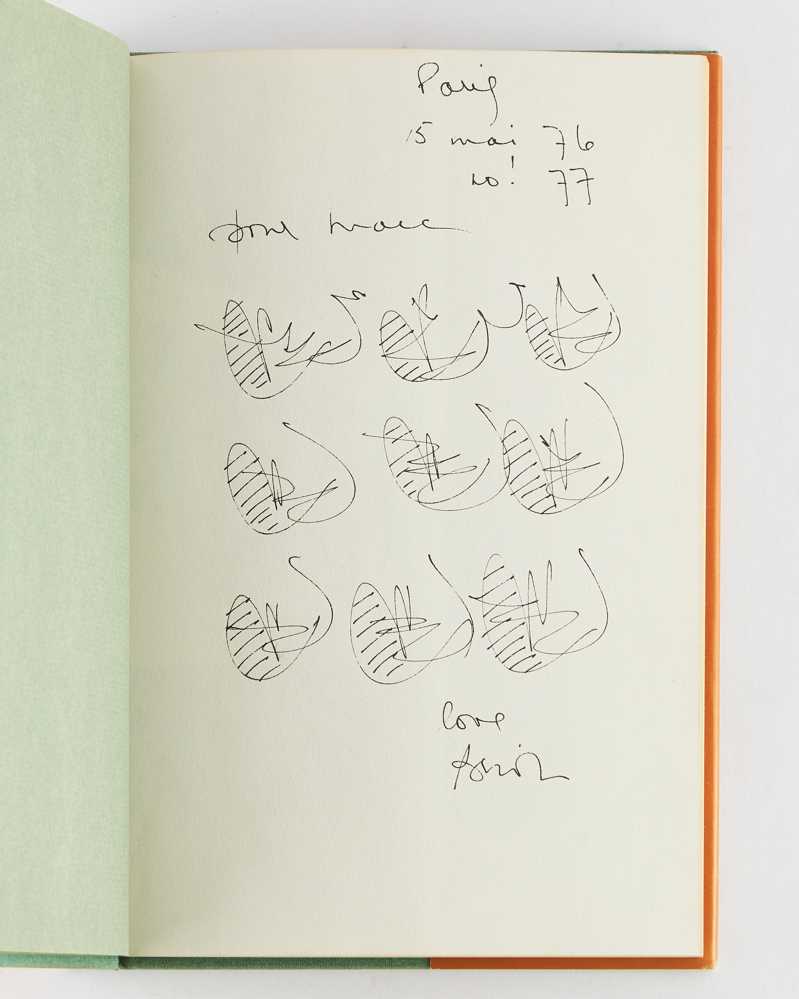 Paris
15 mai 76
no! 77
pour Marc
love